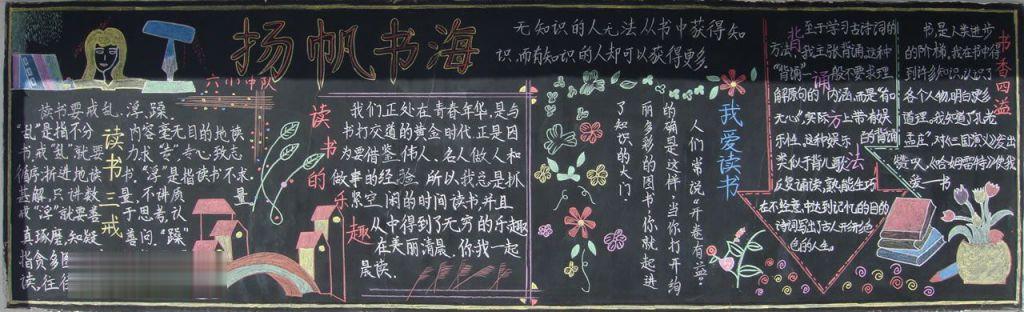 扬帆书海
六(1)中队
无知识的人无法从书中获得知
识,而有知识的人却可以获得更多
读书三戒
读书要戒乱、浮、躁。
"乱"是指不分内容毫无目的地读
书,戒"乱"就要力求"专",专心致志
循序渐进地读书。"浮"是指读书不求
甚解,只讲数量,不讲质量
戒"浮"就要善于思考,认
真琢磨,知疑善问。"躁"
指贪多
读,往往
读书的乐趣
我们正处在青春年华,是与
书打交道的黄金时代,正是因
为要借鉴伟人、名人做人和
做事的经验,所以我总是抓
紧空闲的时间读书,并且
从中得到了无穷的乐趣
在美丽清晨,你我一起
晨读。
我爱读书
人们常说"开卷有益"
的确是这样,当你打开绚
丽多彩的图书,你就走进
了知识的大门。
背诵方法
至于学习古诗词的
方法,我主张背诵,这种
"背诵"一般不要求理
解原句的内涵,而是"有口
无心",实际上带有娱
乐性,这种娱乐的背诵
类似于背儿歌,
反复诵读,熟能生巧
在不经意中达到记忆的目的
诗词写出了古人形形色
色的人生。
书香四溢
书,是人类进步
的阶梯,我在书中得
到许多知识,认识了
各个人物,明白更多
道理。我知道了孔老